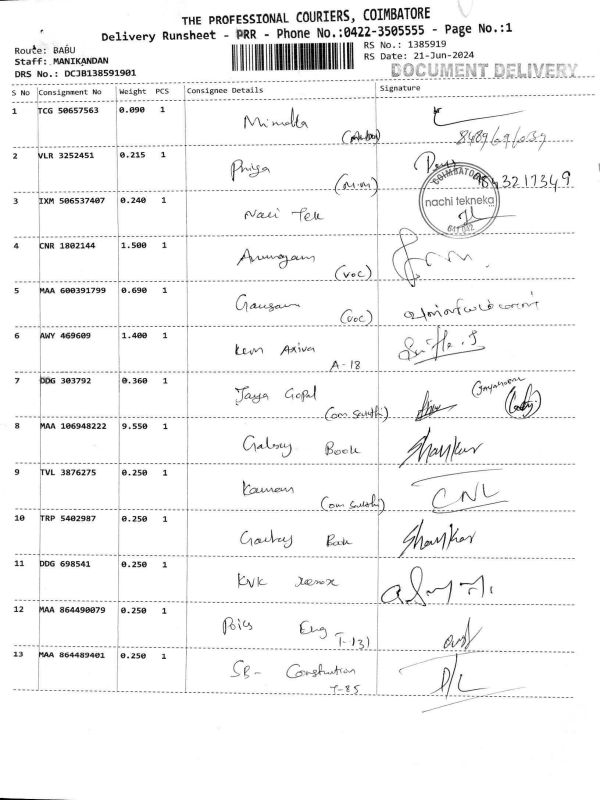 THE PROFESSIONAL COURIERS, COIMBATORE
Delivery Runsheet - PRR - Phone No.:0422-3505555 - Page No.:1
Route: BABU
Staff: MANIKANDAN
DRS No.: DCJB138591901
RS No.: 1385919
RS Date: 21-Jun-2024
DOCUMENT DELIVERY
S No Consignment No Weight PCS Consignee Details Signature
1 TCG 50657563 0.090 1
2 VLR 3252451 0.215 1 Priya
(M.M) 9843217349
COIMBATORE
nachi tekneka
641 042
3 IXM 506537407 0.240 1 Naci Tek
4 CNR 1802144 1.500 1 Arumugam
(VOC)
5 MAA 600391799 0.690 1
(VOC)
6 AWY 469609 1.400 1
A-18
7 DDG 303792 0.360 1 Jaya Gopal
(om sakthi)
8 MAA 106948222 9.550 1 Book Shankar
9 TVL 3876275 0.250 1
(om sakthi) CNL
10 TRP 5402987 0.250 1 Shankar
11 DDG 698541 0.250 1 KVK xerox
12 MAA 864490079 0.250 1 Eng
T-131
13 MAA 864489401 0.250 1 SB- Constrution
T-85
D/C